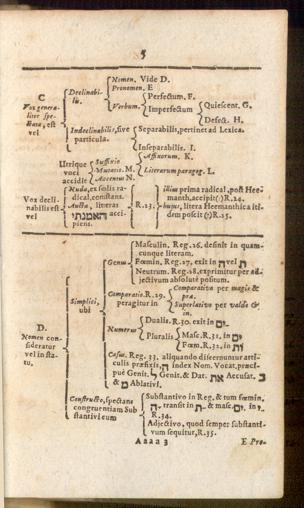 5
C
Vox genera-
liter spe-
ctata, est
vel
Declinabi-
lis.
Nomen. Vide D.
Pronomen. E
Verbum.
Perfectum. F.
Imperfectum
Quiescent. G.
Defect. H.
Indeclinabilis, sive
particula.
Separabilis, pertinet ad Lexica.
Inseparabilis. I.
Utrique
voci
accidit
Suffixio
Mutatio. M.
Accentus N.
Affixorum. K.
Literarum paragog. L.
Vox decli-
nabilis est
vel
Nuda, ex solis ra-
dical. constans.
Aucta, literas
האמנתי acci-
piens.
R. 23.
illius prima radical. post Hee-
manth. accipit R. 24.
hujus, litera Heemanthica iti-
dem poscit R. 25.
D.
Nomen con-
sideratur
vel in sta-
tu,
Simplici,
ubi
Genus
Masculin. Reg. 26. desinit in quam-
cunque literam.
Fœmin. Reg. 27. exit in ה vel ת
Neutrum. Reg. 28. exprimitur per ad-
jectivum absolutè positum.
Comparatio. R. 29.
peragitur in
Comparativo per magis &
præ.
Superlativo per valde &
in.
Numerus
Dualis. R. 30. exit in ים
Pluralis
Masc. R. 31. in ים
Fœm. R. 32. in ות
Casus. Reg. 33. aliquando discernuntur arti-
culis præfixis, ה index Nom. Vocat. præci-
puè Genit. ל Genit. & Dat. את Accusat. ב
& מ Ablativi.
Constructo, spectans
congruentiam Sub
stantivi cum
Substantivo in Reg. & tum fœmin.
ה transit in ת & masc. ים in י
R. 34.
Adjectivo, quod semper substanti-
vum sequitur, R. 35.
Aaaa 3
E Pro-